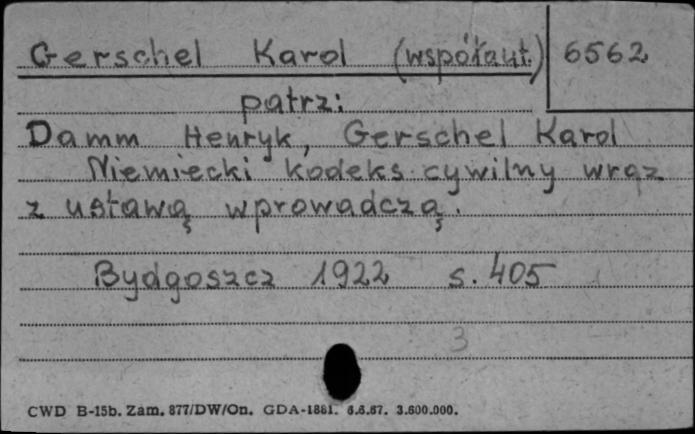 Gerschel Karol (współaut.) 6562
patrz:
Damm Henryk, Gerschel Karol
Niemiecki kodeks cywilny wraz
z ustawą wprowadczą.
Bydgoszcz 1922 s. 405
3
CWD B-15b. Zam. 877/DW/On. GDA-1881. 6.6.67. 3.600.000.